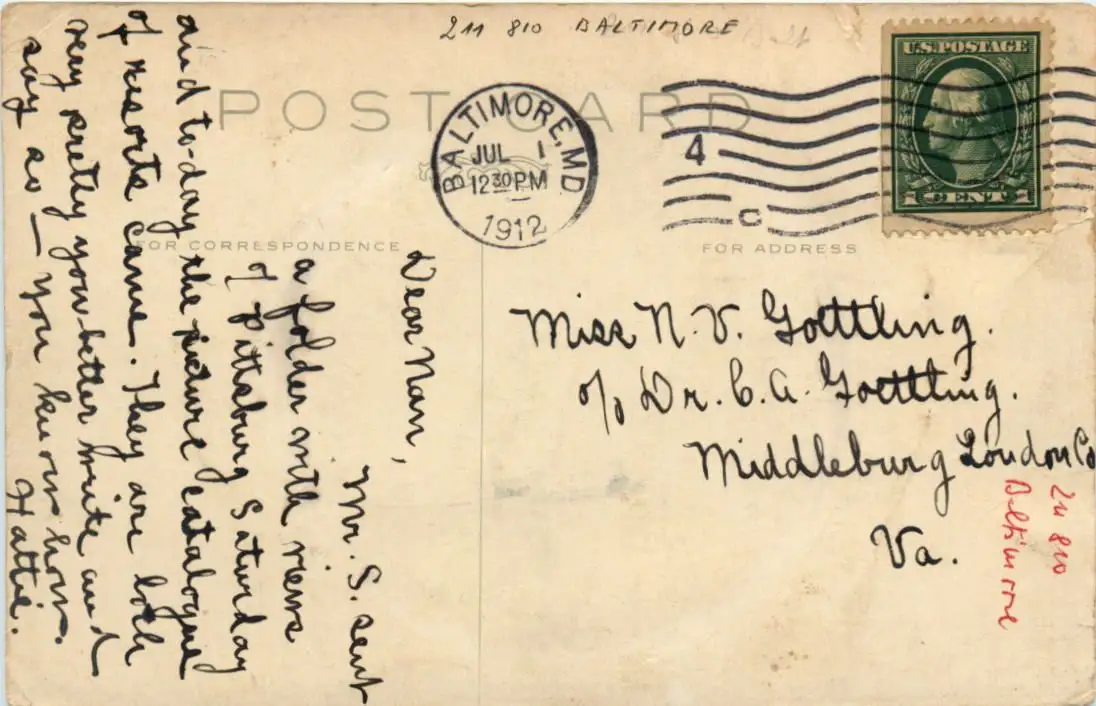 211 810 BALTIMORE
POST CARD
BALTIMORE, MD
JUL 1
12 30 PM
1912
4
C
U.S. POSTAGE
1 CENT 1
FOR CORRESPONDENCE
FOR ADDRESS
Dear Nan,
Mr. S. sent
a folder with views
of Pittsburg Saturday
and to-day the picture catalogue
of resorts came. They are both
very pretty you better write and
say so — You know how.
Hattie.
Miss N. V. Goettling.
c/o Dr. C. A. Goettling.
Middleburg Loudon Co
Va.
211 810
Baltimore